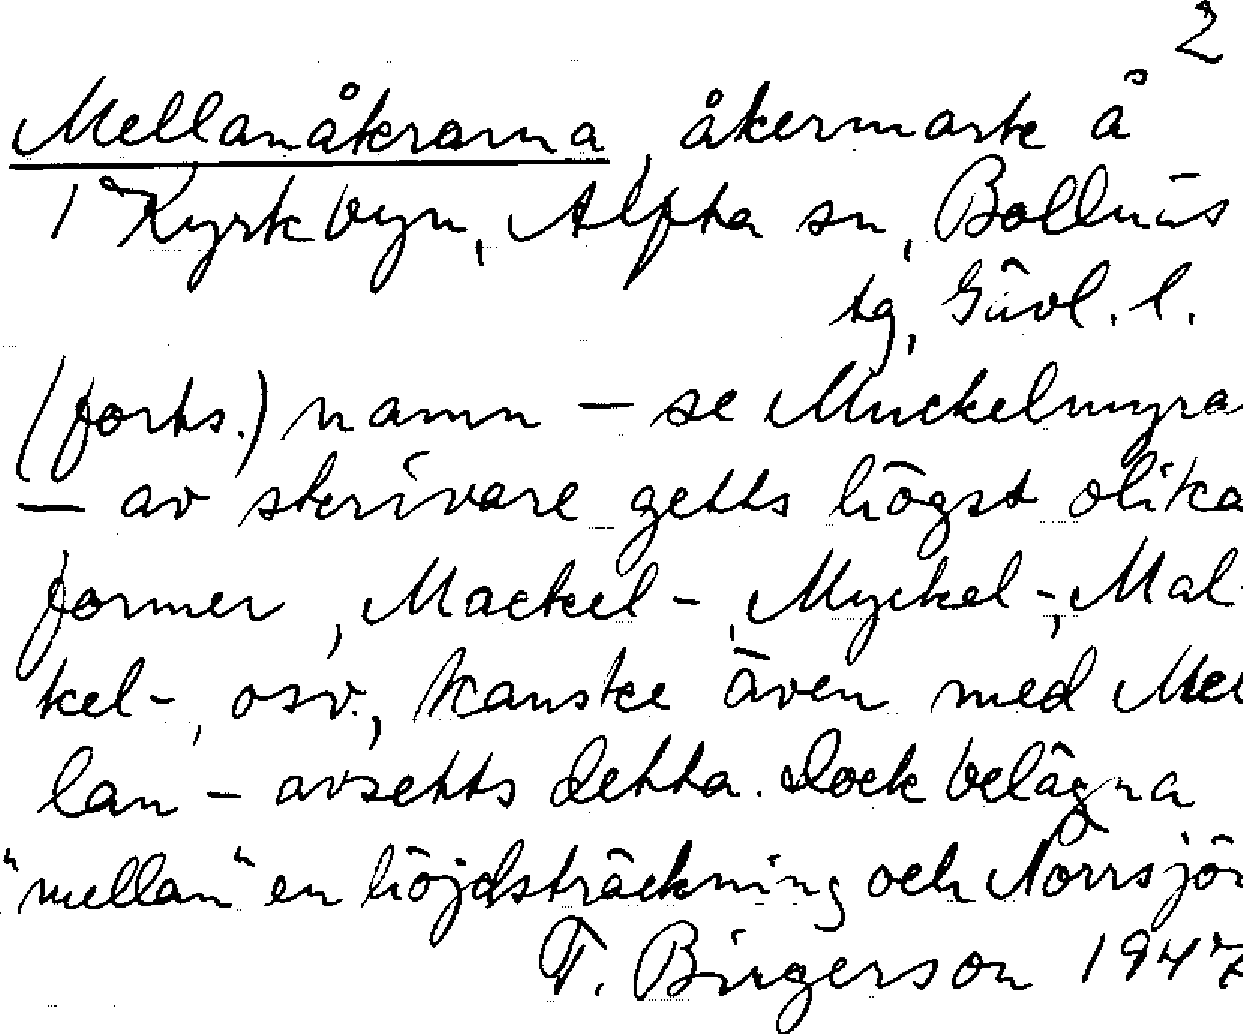 2
Mellanåkrarna, åkermark å
1 Kyrkbyn, Alfta sn, Bollnäs
tg, Gävl. l.
(forts.) namn – se Muckelmyra
– av skrivare getts högst olika
former, Mackel-, Myckel-, Mal-
kel-, osv., kanske även med Mel
lan – avsetts detta. Dock belägna
"mellan" en höjdsträckning och Norrsjön
F. Birgerson 1947